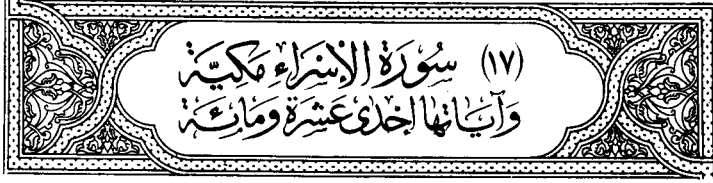 (١٧) سُورَةُ الإِسْرَاءِ مَكِيَّةٌ
وَآيَاتُهَا إِحْدَى عَشْرَةَ وَمِائَةٌ